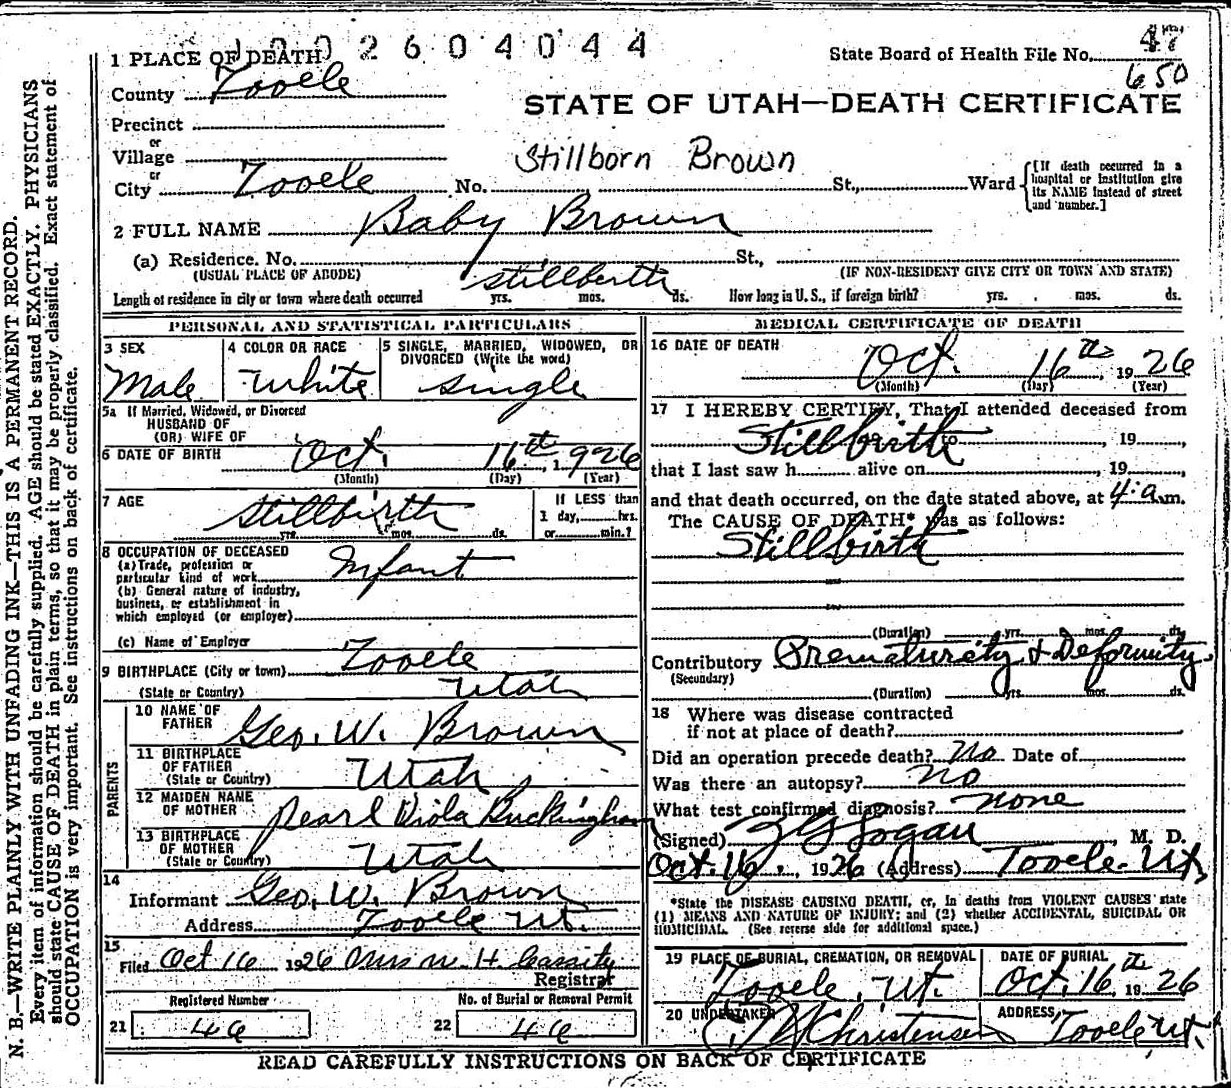 1 2 0 2 6 0 4 0 4 4
State Board of Health File No. 47
650
1 PLACE OF DEATH
County Tooele
STATE OF UTAH—DEATH CERTIFICATE
Precinct
or
Village
Stillborn Brown
or
City Tooele No. St., Ward
[If death occurred in a hospital or institution give its NAME instead of street and number.]
2 FULL NAME Baby Brown
(a) Residence. No. St.,
(USUAL PLACE OF ABODE) (IF NON-RESIDENT GIVE CITY OR TOWN AND STATE)
stillbirth
Length of residence in city or town where death occurred yrs. mos. ds. How long in U. S., if foreign birth? yrs. mos. ds.
PERSONAL AND STATISTICAL PARTICULARS
3 SEX
Male
4 COLOR OR RACE
White
5 SINGLE, MARRIED, WIDOWED, OR DIVORCED (Write the word)
single
5a If Married, Widowed, or Divorced
HUSBAND OF
(OR) WIFE OF
6 DATE OF BIRTH Oct. 16th, 1926
(Month) (Day) (Year)
7 AGE
Stillbirth
yrs. mos. ds.
If LESS than
1 day, hrs.
or min.?
8 OCCUPATION OF DECEASED
(a) Trade, profession or
particular kind of work Infant
(b) General nature of industry,
business, or establishment in
which employed (or employer)
(c) Name of Employer
9 BIRTHPLACE (City or town) Tooele
(State or Country) Utah
PARENTS
10 NAME OF FATHER Geo. W. Brown
11 BIRTHPLACE OF FATHER (State or Country) Utah
12 MAIDEN NAME OF MOTHER Pearl Viola Buckingham
13 BIRTHPLACE OF MOTHER (State or Country) Utah
14
Informant Geo. W. Brown
Address Tooele Ut.
15
Filed Oct 16 1926 Mrs M. H. Cassity
Registrar
Registered Number
21 46
No. of Burial or Removal Permit
22 46
MEDICAL CERTIFICATE OF DEATH
16 DATE OF DEATH
Oct. 16th, 1926
(Month) (Day) (Year)
17 I HEREBY CERTIFY, That I attended deceased from
Stillbirth to , 19 ,
that I last saw h alive on , 19 ,
and that death occurred, on the date stated above, at 4 a.m.
The CAUSE OF DEATH* was as follows:
Stillbirth
(Duration) yrs. mos. ds.
Contributory Prematurity & Deformity
(Secondary)
(Duration) yrs. mos. ds.
18 Where was disease contracted
if not at place of death?
Did an operation precede death? No Date of
Was there an autopsy? no
What test confirmed diagnosis? none
(Signed) Logan M. D.
Oct. 16, 1926 (Address) Tooele Ut.
*State the DISEASE CAUSING DEATH, or, in deaths from VIOLENT CAUSES state
(1) MEANS AND NATURE OF INJURY; and (2) whether ACCIDENTAL, SUICIDAL OR
HOMICIDAL. (See reverse side for additional space.)
19 PLACE OF BURIAL, CREMATION, OR REMOVAL
Tooele, Ut.
DATE OF BURIAL
Oct. 16th 1926
20 UNDERTAKER
Christensen
ADDRESS
Tooele Ut.
READ CAREFULLY INSTRUCTIONS ON BACK OF CERTIFICATE
N. B.—WRITE PLAINLY WITH UNFADING INK—THIS IS A PERMANENT RECORD.
Every item of information should be carefully supplied. AGE should be stated EXACTLY. PHYSICIANS
should state CAUSE OF DEATH in plain terms, so that it may be properly classified. Exact statement of
OCCUPATION is very important. See instructions on back of certificate.